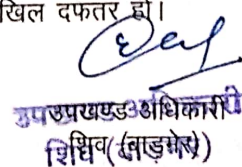 खिल दफतर हो।
उपखण्ड अधिकारी
शिव (बाड़मेर)